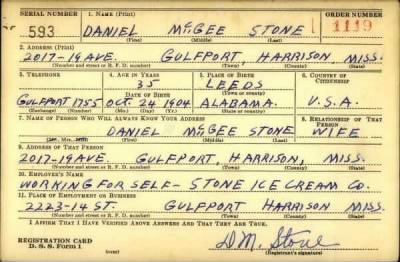 SERIAL NUMBER 1. NAME (Print) ORDER NUMBER
593 DANIEL McGEE STONE 1119
(First) (Middle) (Last)
2. ADDRESS (Print)
2017-19 AVE. GULFPORT, HARRISON, MISS.
(Number and street or R. F. D. number) (Town) (County) (State)
3. TELEPHONE 4. AGE IN YEARS 5. PLACE OF BIRTH 6. COUNTRY OF CITIZENSHIP
35 LEEDS
DATE OF BIRTH (Town or county)
GULFPORT 1755 OCT. 24 1904 ALABAMA. U.S.A.
(Exchange) (No.) (Mo.) (Day) (Yr.) (State or country)
7. NAME OF PERSON WHO WILL ALWAYS KNOW YOUR ADDRESS 8. RELATIONSHIP OF THAT PERSON
DANIEL McGEE STONE WIFE
(Mr., Mrs., Miss) (First) (Middle) (Last)
9. ADDRESS OF THAT PERSON
2017-19 AVE. GULFPORT, HARRISON, MISS.
(Number and street or R. F. D. number) (Town) (County) (State)
10. EMPLOYER'S NAME
WORKING FOR SELF- STONE ICE CREAM CO.
11. PLACE OF EMPLOYMENT OR BUSINESS
2223-14 ST. GULFPORT HARRISON MISS
(Number and street or R. F. D. number) (Town) (County) (State)
I AFFIRM THAT I HAVE VERIFIED ABOVE ANSWERS AND THAT THEY ARE TRUE.
REGISTRATION CARD
D. S. S. Form 1 D.M. Stone
(Registrant's signature)